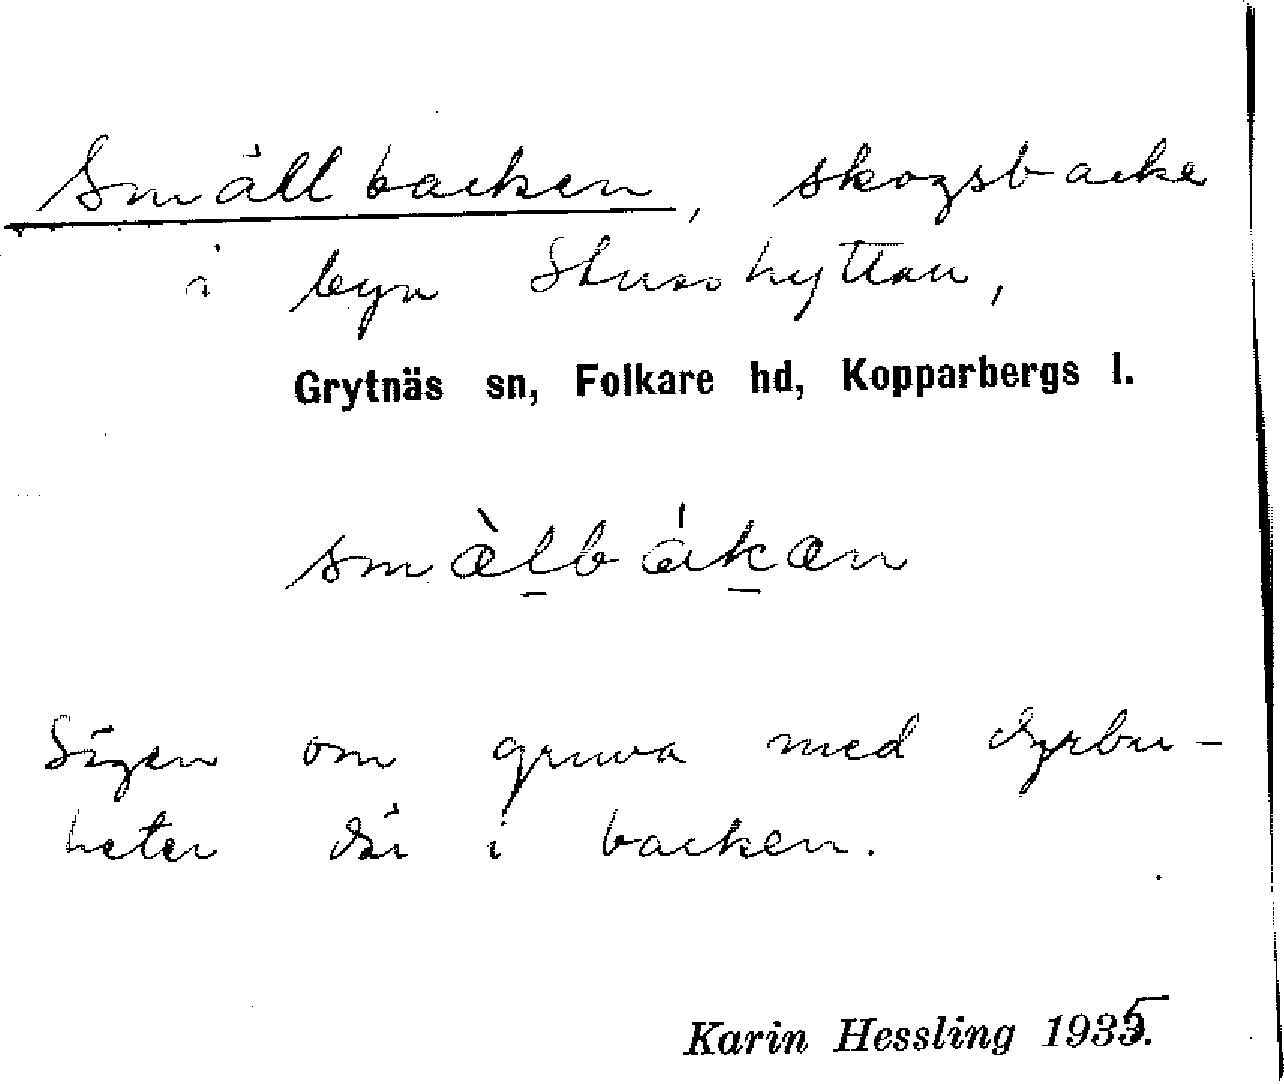 Smällbacken, skogsbacke
i byn Stusshyttan,
Grytnäs sn, Folkare hd, Kopparbergs l.
smæ̀l̲bák̲an
Sägen om gruva med dyrbar-
heter där i backen.
Karin Hessling 1935.